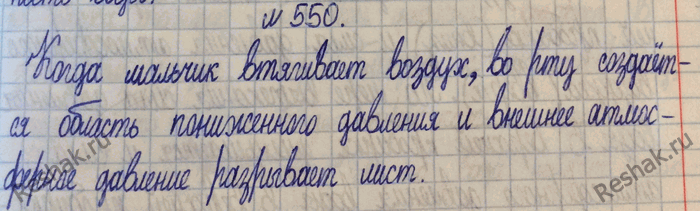 №550.
Когда мальчик втягивает воздух, во рту создаёт-
ся область пониженного давления и внешнее атмос-
ферное давление разрывает лист.
Reshak.ru
Reshak.ru